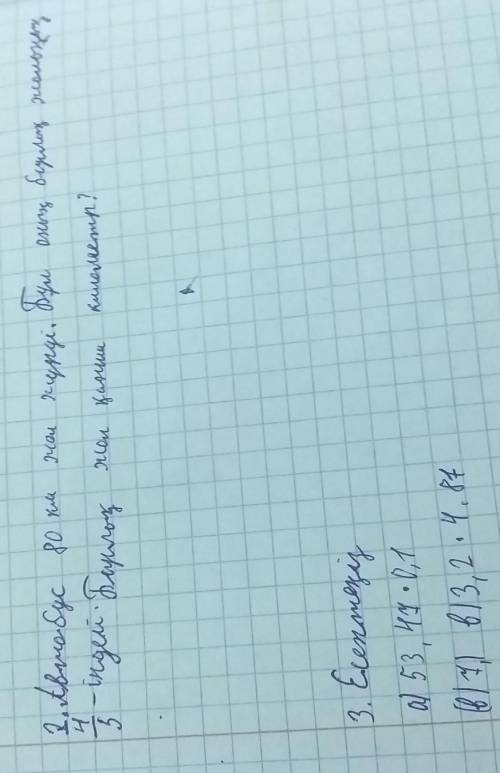 2. Автобус 80 км жол жүрді. Бұл оның барлық жолының
4/5-індей. Барлық жол қанша километр?
3. Есептеңіз
а) 53,47·0,1
в) 3,2·4.87